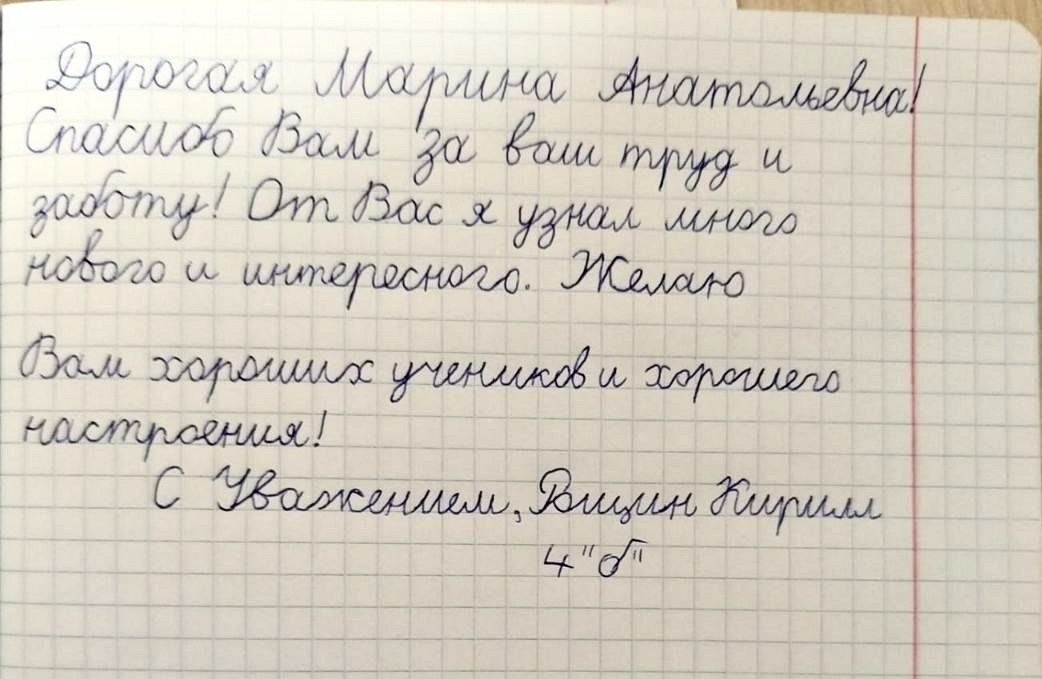 Дорогая Марина Анатольевна!
Спасиоб Вам за ваш труд и
заботу! От Вас я узнал много
нового и интересного. Желаю
Вам хороших учеников и хорошего
настроения!
С Уважением, Вицин Кирилл
4 "б"